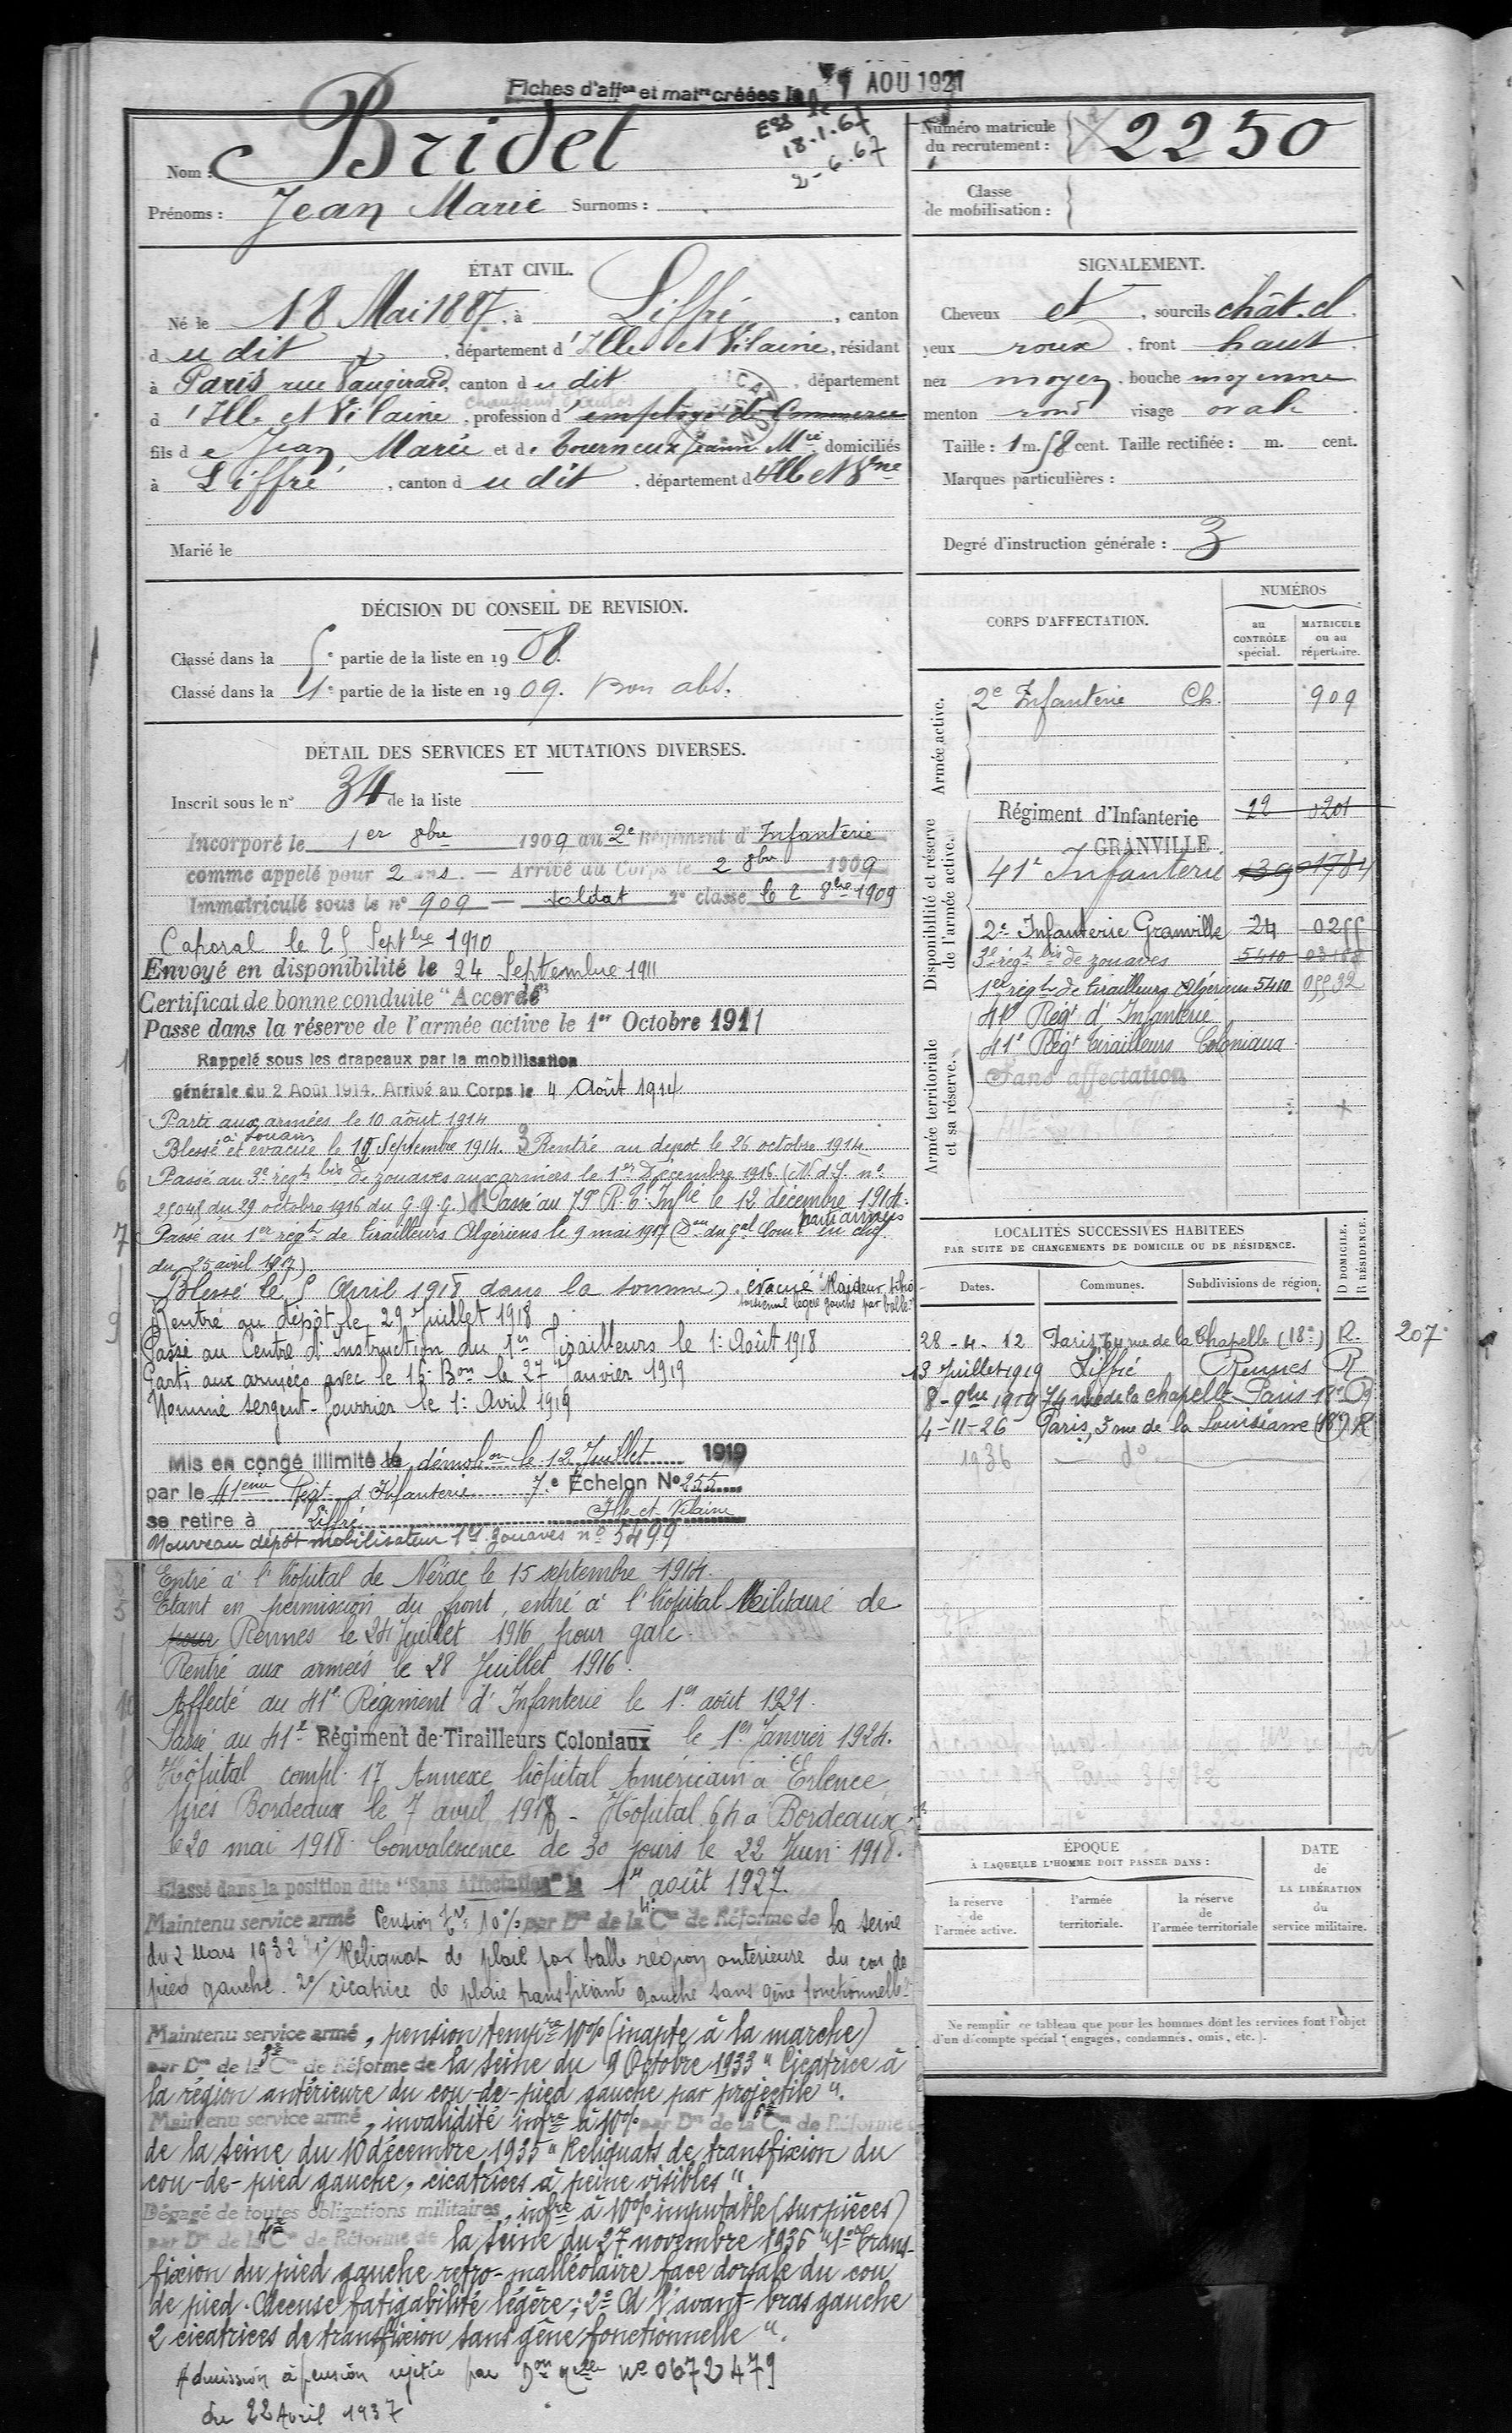 Fiches d'affon et matre créées le AOU 1921
Nom : Bridet
18.1.67
2-6.67
Prénoms : Jean Marie Surnoms :
Numéro matricule du recrutement : 2250
Classe de mobilisation :
ÉTAT CIVIL.
Né le 18 Mai 1887, à Liffré, canton
d u dit, département d'Ille et Vilaine, résidant
à Paris rue Vaugirard, canton d u dit, département
d'Ille et Vilaine, profession d'employé de Commerce
fils d e Jean Marie et de Tourneux Jeanne Mie domiciliés
à Liffré, canton d u dit, département d'Ille et Vne
Marié le
SIGNALEMENT.
Cheveux et, sourcils chât. cl.
yeux roux, front haut
nez moyen, bouche moyenne
menton rond visage ovale
Taille : 1 m. 58 cent. Taille rectifiée : m. cent.
Marques particulières :
Degré d'instruction générale : 3
DÉCISION DU CONSEIL DE REVISION.
Classé dans la 5e partie de la liste en 1908.
Classé dans la 1e partie de la liste en 1909. Bon abs.
DÉTAIL DES SERVICES ET MUTATIONS DIVERSES.
Inscrit sous le n° 34 de la liste
Incorporé le 1er 8bre 1909 au 2e Régiment d'Infanterie
comme appelé pour 2 ans. — Arrivé au Corps le 2 8bre 1909
Immatriculé sous le n° 909 — soldat 2e classe le 2 8bre 1909
Caporal le 25 Septbre 1910
Envoyé en disponibilité le 24 Septembre 1911
Certificat de bonne conduite "Accordé"
Passe dans la réserve de l'armée active le 1er Octobre 1911
Rappelé sous les drapeaux par la mobilisation
générale du 2 Août 1914. Arrivé au Corps le 4 Août 1914
Parti aux armées le 10 août 1914
Blessé et évacué le Septembre 1914. Rentré au dépôt le 26 octobre 1914.
Passé au 3e régt bis de zouaves aux armées le 1er Décembre 1916 (N. d. S. n°
25045 du 29 octobre 1916 du G.Q.G.) Passé au 75e R. t. Infie le 12 décembre 1914.
parti armées
Passé au 1er régt de tirailleurs Algériens le 9 mai 1917 (Don du gal Comt en chef
du 25 avril 1917)
Blessé le 5 Avril 1918 dans la somme). évacué
Rentré au dépôt le 29 Juillet 1918
Passé au Centre d'Instruction du 1er Tirailleurs le 1: Août 1918
Parti aux armées avec le 16 Bon le 27 Janvier 1919
Nommé sergent-fourrier le 1: Avril 1919
Mis en congé illimité de démobon le 12 Juillet 1919
par le 41ème Régt d'Infanterie 7e Échelon N° 255
se retire à Liffré Ille-et-Vilaine
Nouveau dépôt mobilisateur 1er zouaves n° 5499
Entré à l'hôpital de Nérac le 15 septembre 1914.
Etant en permission du front, entré à l'hôpital Militaire de
pour Rennes le 24 Juillet 1916 pour gale.
Rentré aux armées le 28 Juillet 1916.
Affecté au 41e Régiment d'Infanterie le 1er août 1921.
Passé au 41e Régiment de Tirailleurs Coloniaux le 1er Janvier 1924.
Hôpital compl. 17 Annexe hôpital Américain à Erlence
près Bordeaux le 7 avril 1918 - Hôpital 64 à Bordeaux
le 20 mai 1918. Convalescence de 30 jours le 22 Juin 1918.
Classé dans la position dite "Sans Affectation" le 1er août 1927.
Maintenu service armé Pension Tre 10% par Don de la 4e Con de Réforme de la Seine
du 2 Mars 1932 "1°/ Reliquat de plaie par balle region anterieure du cou de
pied gauche. 2°/ cicatrice de plaie transfixiante gauche sans gêne fonctionnelle"
Maintenu service armé, pension tempre 10% (inapte à la marche)
par Don de la Con de Réforme de la Seine du 9 Octobre 1933 "Cicatrice à
la région antérieure du cou-de-pied gauche par projectile".
Maintenu service armé, invalidité infre à 10% par Don de la Con de Réforme
de la Seine du 10 décembre 1935 "Reliquats de transfixion du
cou-de-pied gauche, cicatrices à peine visibles".
Dégagé de toutes obligations militaires, infre à 10% imputable (sur pièces)
par Don de la Con de Réforme de la Seine du 27 novembre 1936 "1° Trans-
fixion du pied gauche retro-malléolaire face dorsale du cou
de pied. Accuse fatigabilité légère ; 2° A l'avant-bras gauche
2 cicatrices de transfixion sans gêne fonctionnelle".
Admission à pension rejetée par Don Mlle N° 0672479
du 22 Avril 1937
CORPS D'AFFECTATION.
NUMÉROS
au CONTRÔLE spécial.
MATRICULE ou au répertoire.
Armée active.
2e Infanterie Ch. 909
Disponibilité et réserve de l'armée active.
Régiment d'Infanterie 22 0201
GRANVILLE
41e Infanterie 139 01784
2e Infanterie Granville 24 0255
3e régt bis de zouaves 5410 03188
1er régt de tirailleurs Algériens 5410 05532
41e Régt d'Infanterie
Armée territoriale et sa réserve.
41e Régt tirailleurs Coloniaux
Sans affectation
LOCALITÉS SUCCESSIVES HABITÉES
PAR SUITE DE CHANGEMENTS DE DOMICILE OU DE RÉSIDENCE.
Dates. Communes. Subdivisions de région. D DOMICILE. R RÉSIDENCE.
28-4-12 Paris, 74 rue de la Chapelle (18e) R. 207
13 Juillet 1919 Liffré Rennes R
8-9bre 1919 74 rue de la chapelle Paris 18e R
4-11-26 Paris, 5 rue de la Louisiane (18e) R
1936 do
ÉPOQUE
À LAQUELLE L'HOMME DOIT PASSER DANS :
la réserve de l'armée active.
l'armée territoriale.
la réserve de l'armée territoriale
DATE de LA LIBÉRATION du service militaire.
Ne remplir ce tableau que pour les hommes dont les services font l'objet
d'un décompte spécial (engagés, condamnés, omis, etc.).